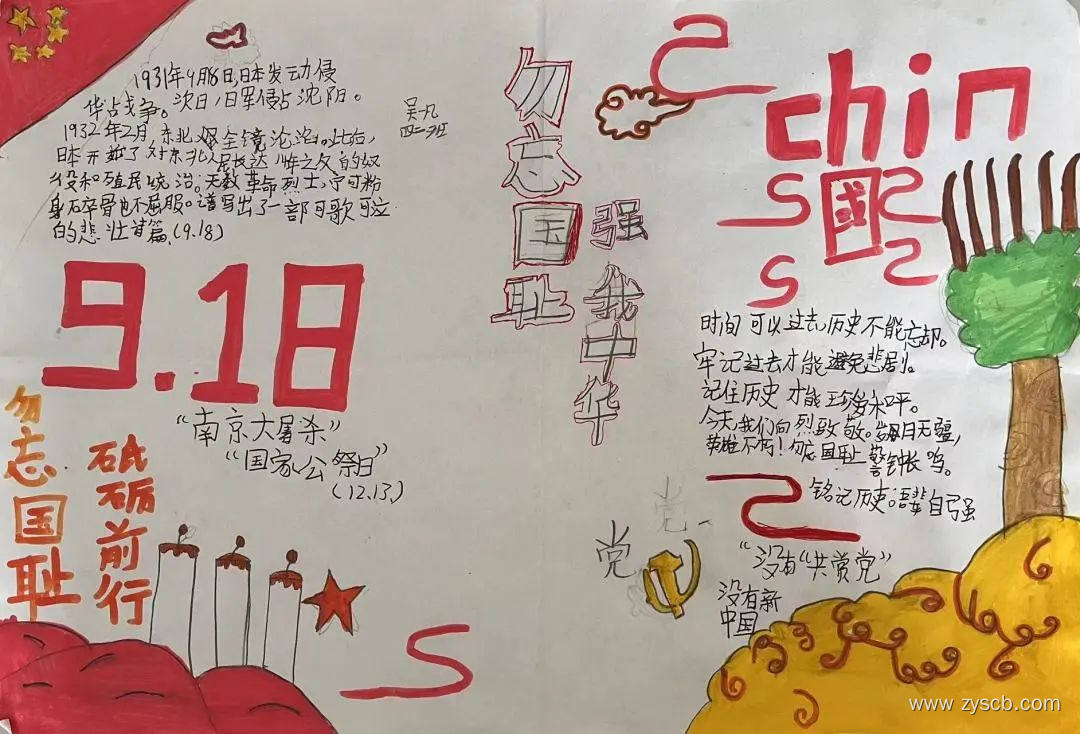 1931年9月18日,日本发动侵
华占战争。次日,日军侵占沈阳。
1932年2月,东北 全镜沦 。此后,
日本开始了对东北人民长达 年之久的奴
役和殖民统治。无数革命烈士,宁可粉
身石卒骨也不屈服。谱写出了一部可歌可泣
的悲壮首篇,(9.18)
吴凡
四二班
9.18
"南京大屠杀"
"国家公祭日"
(12.13,)
勿忘国耻
砥砺前行
勿忘国耻
强我中华
chin
國
时间可以过去,历史不能忘却。
牢记过去才能避免悲剧。
记住历史才能 和平。
今天,我们向烈致敬。 月无疆,
英雄不朽!勿忘国耻 警钟长鸣。
铭记历史。吾辈自强
党
党
"没有"共党党"
没有新
中国
www.zyscb.com